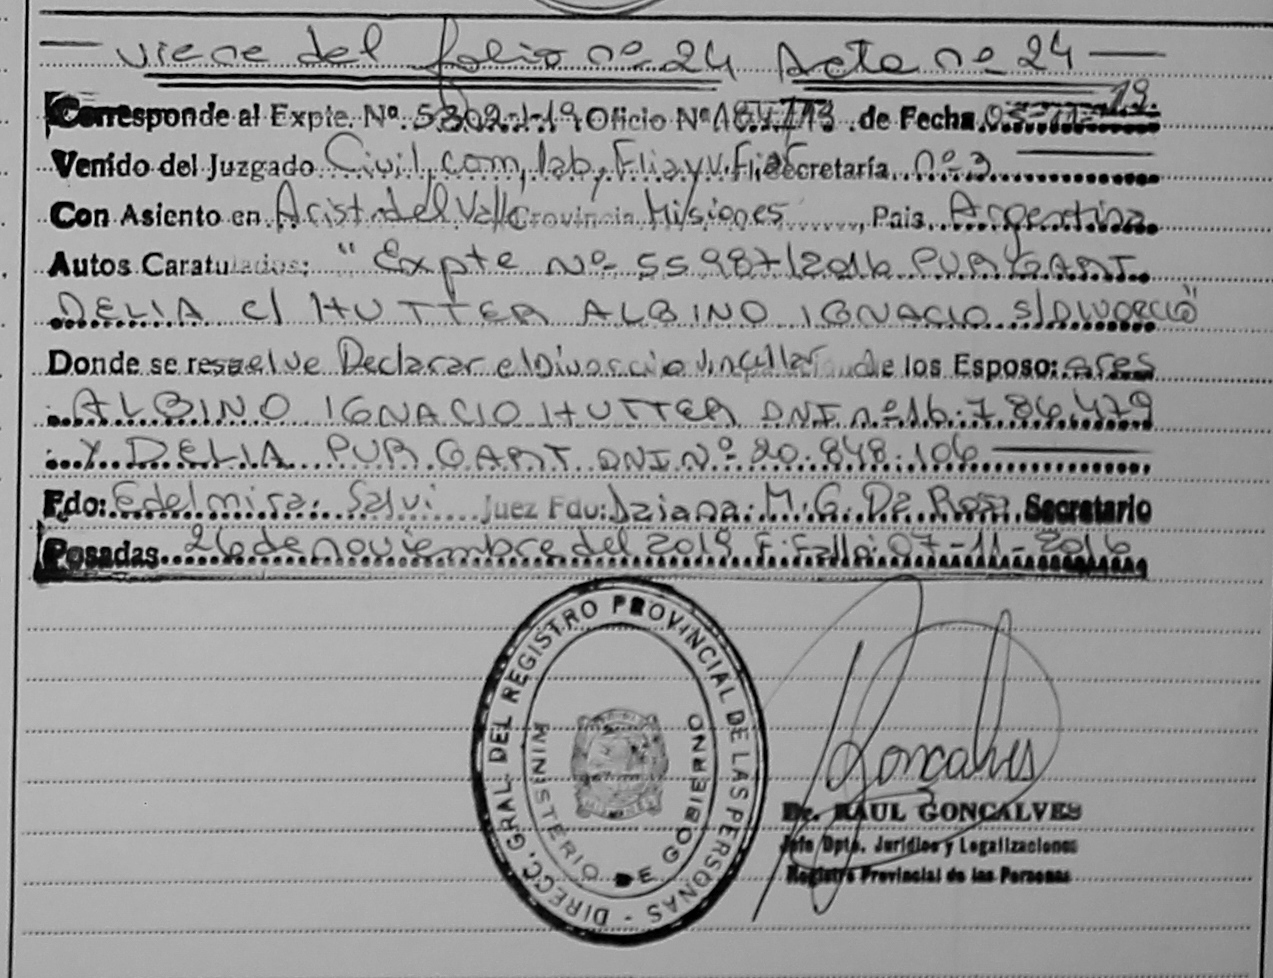 viene del folio nº 24 Acta nº 24
Corresponde al Expte. Nº. 5302-J-19 Oficio Nº de Fecha 19.
Venido del Juzgado Civil, com, lab, Flia y V. Flia Secretaría nº 3
Con Asiento en Arist. del Valle Provincia Misiones, Pais Argentina
Autos Caratulados: "Expte Nº 55987/2016 PURGART
DELIA c/ HUTTER ALBINO IGNACIO s/DIVORCIO"
Donde se resuelve Declarar el Divorcio vincular de los Esposo: ares
ALBINO IGNACIO HUTTER DNI nº 16.784.479
Y DELIA PURGART DNI Nº 20.848.106
Fdo: Edelmira Salvi Juez Fdo: M. G. Da Rosa Secretario
Posadas 26 de noviembre del 2019 F. Fallo: 07-11-2016
DIRECC. GRAL. DEL REGISTRO PROVINCIAL DE LAS PERSONAS -
MINISTERIO DE GOBIERNO
Goncalves
Dr. RAUL GONCALVES
Jefe Dpto. Jurídico y Legalizaciones
Registro Provincial de las Personas